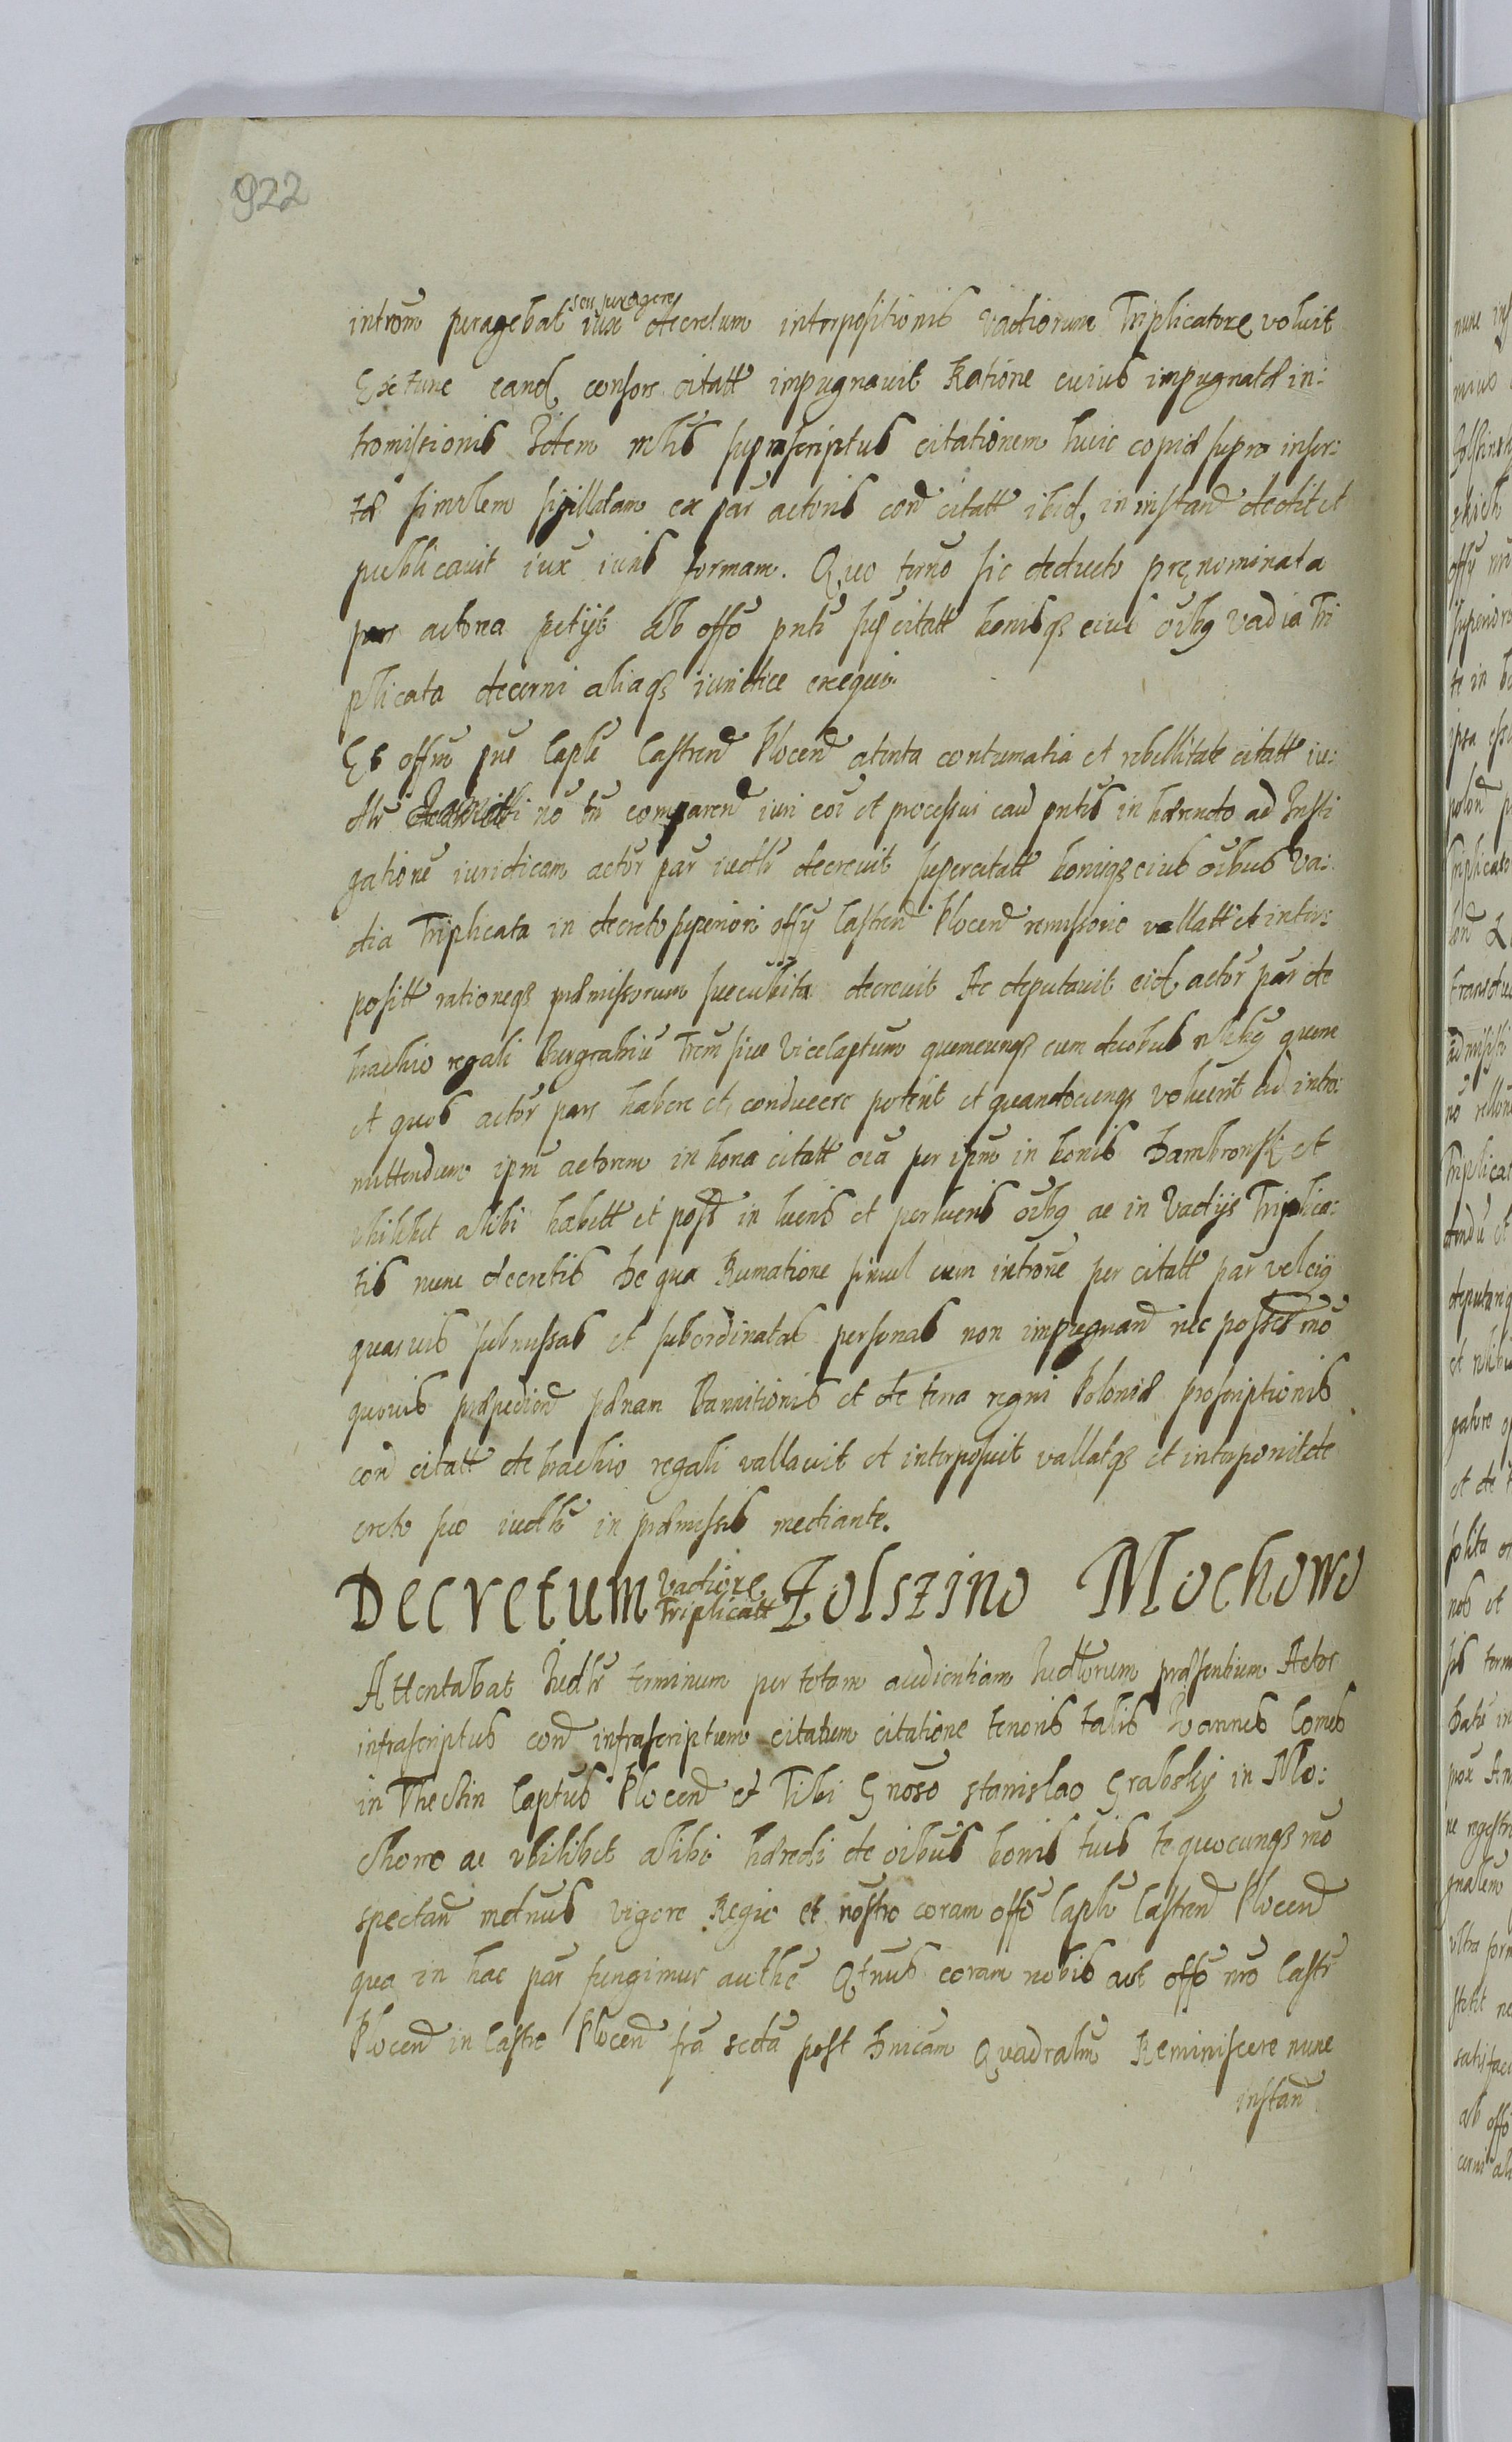 922
introm̃ peragebat seu peragere iux̃ decretum interpositionis Vadiorum Triplicatorꝝ voluit
Ex tunc eand consors citatt impugnauit Ratione cuius impugnatæ in:
tromissionis Idem mlis suprascriptus citationem huic copiæ supra inser:
tæ similem sigillatam ex par actoris con citatt ibid in instan dedit et
publicauit iux iuris formam. Quo termo sic deducto pręnominata
pars actorea petijt ab offo pnti sup citatt bonisqꝫ eius oibꝫ Vadia Tri
plicata decerni aliaqꝫ iuridice exequi.
Et offm pns Caple Castren Plocen atenta contumatia et rebellitate citatt iu:
dlr no tn comparen iuri eoi et processui cau pntis inhærendo ad Insti
gatione iuridicam actor par iudlr decreuit super citatt bonisqꝫ eius oibus Va:
dia Triplicata in decreto superiori offy Castren Plocen remissorie vallatt et inter:
positt rationeqꝫ præmissorum succubita decreuit Ac deputauit eid actor par de
brachio regali Burgrabiu Trem siue Vicecaptum quemcunqꝫ cum duobus nlibꝫ quem
et quos actor pars habere et conducere poterit et quandocunqꝫ voluerit ad intro:
mittendum ipm actorem in bona citatt oia per ipm in bonis Dambronsk et
vbilibet alibi habitt et poss in lucris et perlucris oibꝫ ac in Vadijs Triplica:
tis nunc decretis De qua Rumatione simul cum introne per citatt par vel eiꝫ
quasuis submissas et subordinatas personas non impugnan nec posses mo
quouis præpedien pænam Bannitionis et de terra regni Poloniæ proscriptionis
con citatt de brachio regali vallauit et interposuit vallatqꝫ et interponit de
creto suo iudlr in præmissis mediante.
Decretum Vadiorꝝ Triplicatt Zolszino Mochowo
Attentabat Iudlr terminum per totam audientiam Iudlorum præsentium Actor
infrascriptus con infrascriptum citatum citatione tenoris talis Ioannes Comes
in Captus Plocen et Tibi Gnoso Stanislao Grabsky in Mo:
chowo ac vbilibet alibi hæredi de oibus bonis tuis te quocunqꝫ mo
spectan mdnus vigore Regio et nostro coram offo Capli Castren Plocen
qua in hac par fungimur authe Qtnus coram nobis aut offo nro Castr
Plocen in Castro Plocen fra scda post Dnicam Quadralm Reminiscere nunc
instan